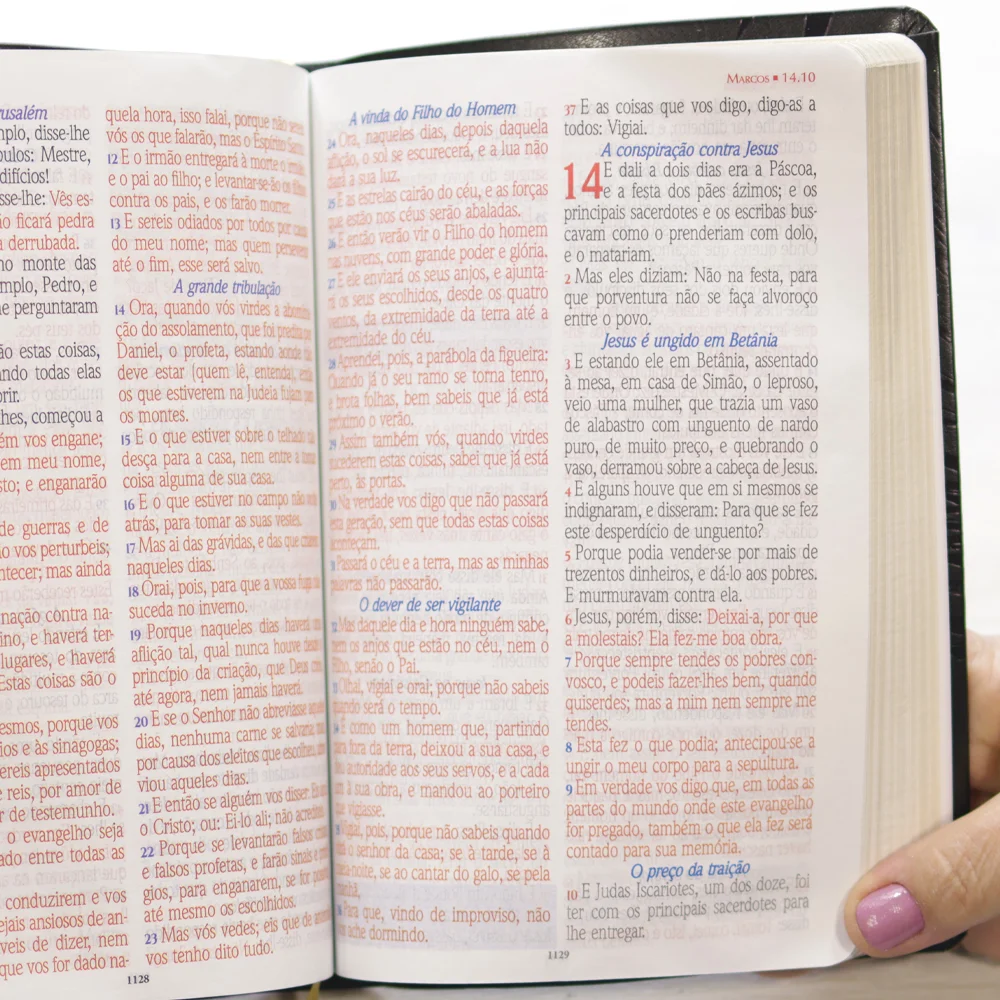 rusalém
mplo, disse-lhe
pulos: Mestre,
difícios!
sse-lhe: Vês es-
ão ficará pedra
a derrubada.
no monte das
mplo, Pedro, e
he perguntaram
ão estas coisas,
ando todas elas
rir.
lhes, começou a
ém vos engane;
em meu nome,
sto; e enganarão
de guerras e de
ão vos perturbeis;
ntecer; mas ainda
nação contra na-
ino, e haverá ter-
lugares, e haverá
Estas coisas são o
esmos, porque vos
ios e às sinagogas;
ereis apresentados
e reis, por amor de
r de testemunho.
o evangelho seja
ado entre todas as
conduzirem e vos
ejais ansiosos de an-
veis de dizer, nem
que vos for dado na-
quela hora, isso falai, porque não
vós os que falarão, mas o Espírito
12 E o irmão entregará à morte o
e o pai ao filho; e levantar-se-ão os
contra os pais, e os farão morrer.
13 E sereis odiados por todos por
do meu nome; mas quem
até o fim, esse será salvo.
A grande tribulação
14 Ora, quando vós virdes a
ção do assolamento, que foi
Daniel, o profeta, estando
deve estar (quem lê, entenda),
os que estiverem na Judéia
os montes.
15 E o que estiver sobre o telhado
desça para a casa, nem entre a
coisa alguma de sua casa.
16 E o que estiver no campo não
atrás, para tomar as suas vestes.
17 Mas ai das grávidas, e das que
naqueles dias.
18 Orai, pois, para que a vossa
suceda no inverno.
19 Porque naqueles dias haverá
aflição tal, qual nunca houve
princípio da criação, que Deus
até agora, nem jamais haverá.
20 E se o Senhor não abreviasse
dias, nenhuma carne se
por causa dos eleitos que
viou aqueles dias.
21 E então se alguém vos disser:
o Cristo; ou: Ei-lo ali; não
22 Porque se levantarão falsos
e falsos profetas, e farão sinais e
gios, para enganarem, se for
até mesmo os escolhidos.
23 Mas vós vedes; eis que de
vos tenho dito tudo.
1128
A vinda do Filho do Homem
24 Ora, naqueles dias, depois daquela
aflição, o sol se escurecerá, e a lua não
dará a sua luz.
25 E as estrelas cairão do céu, e as forças
que estão nos céus serão abaladas.
26 E então verão vir o Filho do homem
nas nuvens, com grande poder e glória.
27 E ele enviará os seus anjos, e ajunta-
rá os seus escolhidos, desde os quatro
ventos, da extremidade da terra até a
extremidade do céu.
28 Aprendei, pois, a parábola da figueira:
Quando já o seu ramo se torna tenro,
e brota folhas, bem sabeis que já está
próximo o verão.
29 Assim também vós, quando virdes
sucederem estas coisas, sabei que já está
perto, às portas.
Na verdade vos digo que não passará
esta geração, sem que todas estas coisas
aconteçam.
Passará o céu e a terra, mas as minhas
palavras não passarão.
O dever de ser vigilante
Mas daquele dia e hora ninguém sabe,
nem os anjos que estão no céu, nem o
Filho, senão o Pai.
Olhai, vigiai e orai; porque não sabeis
quando será o tempo.
É como um homem que, partindo
para fora da terra, deixou a sua casa, e
autoridade aos seus servos, e a cada
um a sua obra, e mandou ao porteiro
que vigiasse.
Vigiai, pois, porque não sabeis quando
o senhor da casa; se à tarde, se à
meia-noite, se ao cantar do galo, se pela
manhã,
Para que, vindo de improviso, não
vos ache dormindo.
MARCOS ▪ 14.10
37 E as coisas que vos digo, digo-as a
todos: Vigiai.
A conspiração contra Jesus
14 E dali a dois dias era a Páscoa,
e a festa dos pães ázimos; e os
principais sacerdotes e os escribas bus-
cavam como o prenderiam com dolo,
e o matariam.
2 Mas eles diziam: Não na festa, para
que porventura não se faça alvoroço
entre o povo.
Jesus é ungido em Betânia
3 E estando ele em Betânia, assentado
à mesa, em casa de Simão, o leproso,
veio uma mulher, que trazia um vaso
de alabastro com unguento de nardo
puro, de muito preço, e quebrando o
vaso, derramou sobre a cabeça de Jesus.
4 E alguns houve que em si mesmos se
indignaram, e disseram: Para que se fez
este desperdício de unguento?
5 Porque podia vender-se por mais de
trezentos dinheiros, e dá-lo aos pobres.
E murmuravam contra ela.
6 Jesus, porém, disse: Deixai-a, por que
a molestais? Ela fez-me boa obra.
7 Porque sempre tendes os pobres con-
vosco, e podeis fazer-lhes bem, quando
quiserdes; mas a mim nem sempre me
tendes.
8 Esta fez o que podia; antecipou-se a
ungir o meu corpo para a sepultura.
9 Em verdade vos digo que, em todas as
partes do mundo onde este evangelho
for pregado, também o que ela fez será
contado para sua memória.
O preço da traição
10 E Judas Iscariotes, um dos doze, foi
ter com os principais sacerdotes para
lhe entregar.
1129